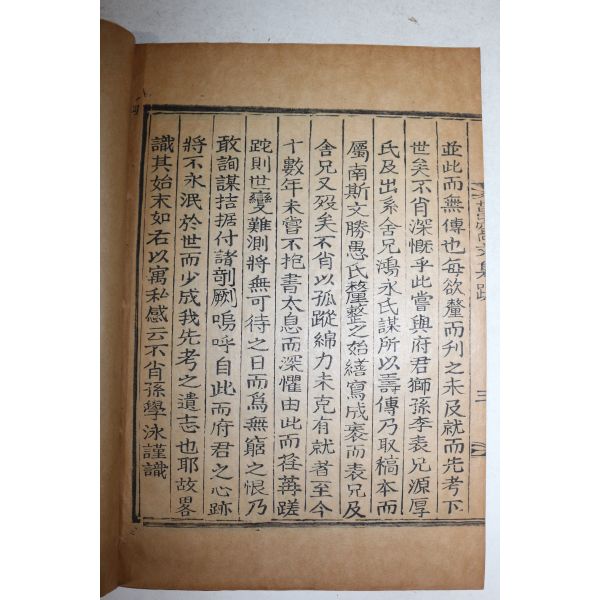 並此而無傳也每欲釐而刋之未及就而先考下
世矣不肖深慨乎此嘗與府君獅孫李表兄源厚
氏及出系舍兄鴻永氏謀所以壽傳乃取稿本而
屬南斯文勝愚氏釐整之始繕寫成袠而表兄及
舍兄又歿矣不肖以孤蹤綿力未克有就者至今
十數年未嘗不抱書太息而深懼由此而荏苒蹉
跎則世變難測將無可待之日而爲無窮之恨乃
敢詢謀拮据付諸剞劂嗚呼自此而府君之心跡
將不永泯於世而少成我先考之遺志也耶故畧
識其始末如右以寓私感云不肖孫學泳謹識
文集跋
三